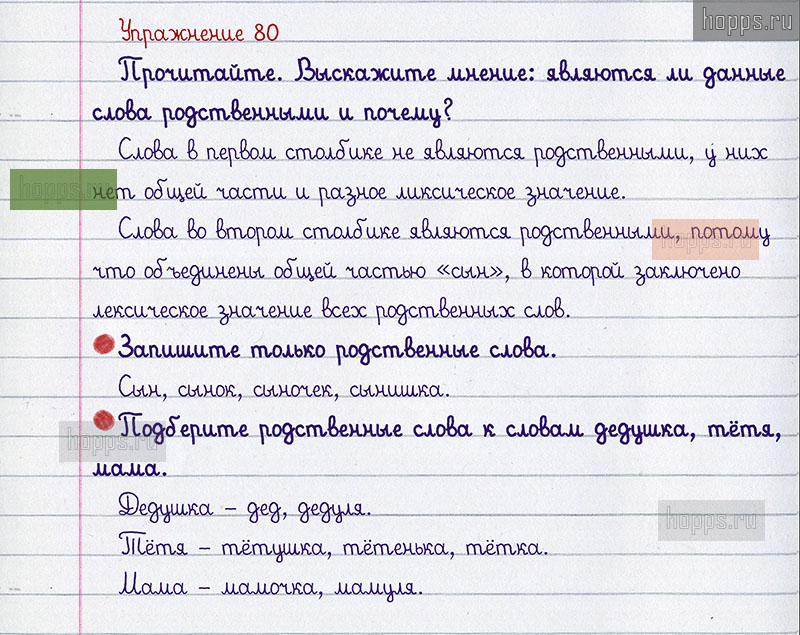 hopps.ru
Упражнение 80
Прочитайте. Выскажите мнение: являются ли данные
слова родственными и почему?
Слова в первом столбике не являются родственными, у них
hopps.ru
нет общей части и разное ликсическое значение.
Слова во втором столбике являются родственными, потому
hopps.ru
что объединены общей частью «сын», в которой заключено
лексическое значение всех родственных слов.
Запишите только родственные слова.
Сын, сынок, сыночек, сынишка.
Подберите родственные слова к словам дедушка, тётя,
hopps.ru
мама.
Дедушка – дед, дедуля.
hopps.ru
Тётя – тётушка, тётенька, тётка.
Мама – мамочка, мамуля.